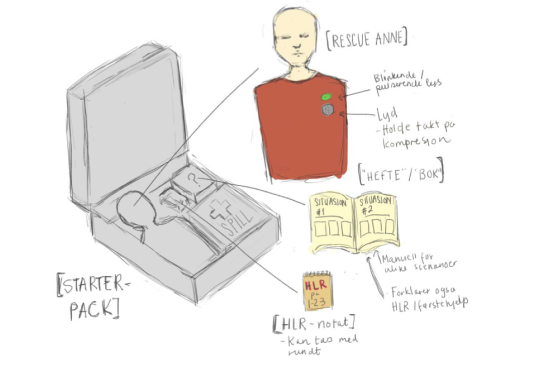 [RESCUE ANNE]
Blinkende/
pulserende lys
Lyd
- Holde takt på
kompresjon
["HEFTE"/"BOK"]
SITUASJON
#1
SITUASJON
#2
Manuell for
ulike scenarioer
- Forklarer også
HLR/førstehjelp
?
SPILL
[STARTER-
PACK]
HLR
på
1-2-3
[HLR-notat]
- Kan tas med
rundt